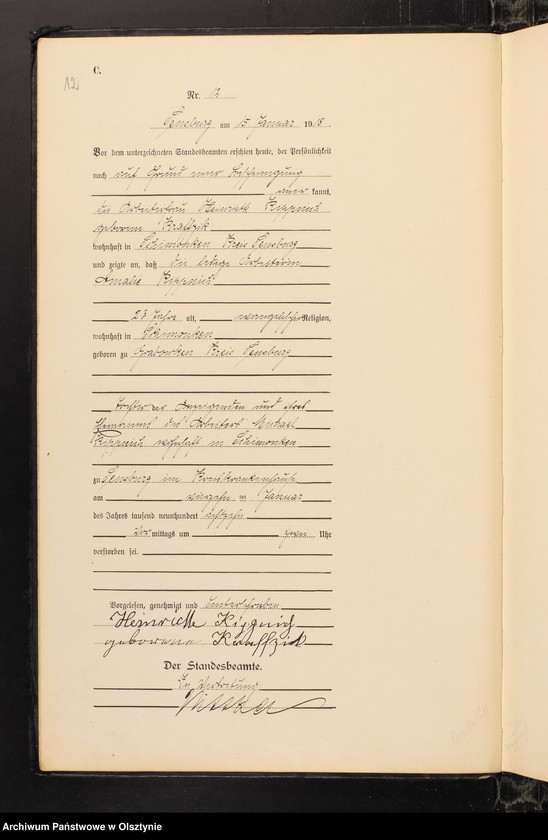 12.
C.
Nr. 12
Sensburg am 15 Januar 1918.
Vor dem unterzeichneten Standesbeamten erschien heute, der Persönlichkeit
nach auf Grund einer Bescheinigung
aner kannt,
die Arbeiterfrau
geborene
wohnhaft in Schimonken Kreis Sensburg
und zeigte an, daß die ledige Arbeiterin
Amalie
23 Jahre alt, evangelischer Religion,
wohnhaft in Schimonken
geboren zu Grabowken Kreis Sensburg
Tochter der Anzeigenden und ihres
Ehemannes des Arbeiters Michael
wohnhaft in Schimonken
zu Sensburg im Kreiskrankenhause
am vierzehn ten Januar
des Jahres tausend neunhundert achtzehn
Vor mittags um zwei Uhr
verstorben sei.
Vorgelesen, genehmigt und unterschrieben
Heinriette
geborene
Der Standesbeamte.
In Vertretung
Archiwum Państwowe w Olsztynie